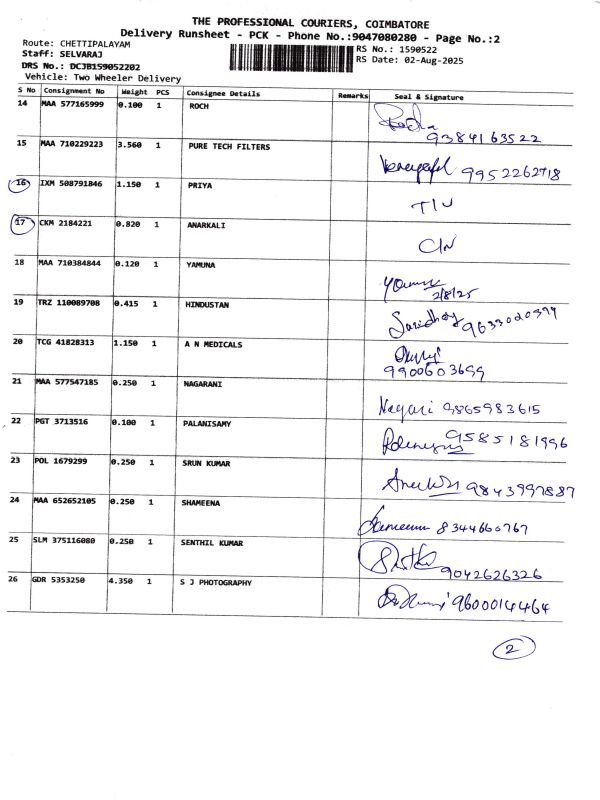 THE PROFESSIONAL COURIERS, COIMBATORE
Delivery Runsheet - PCK - Phone No.:9047080280 - Page No.:2
Route: CHETTIPALAYAM
RS No.: 1590522
Staff: SELVARAJ
RS Date: 02-Aug-2025
DRS No.: DCJB159052202
Vehicle: Two Wheeler Delivery
S No Consignment No Weight PCS Consignee Details Remarks Seal & Signature
14 MAA 577165999 0.100 1 ROCH
9384163522
15 MAA 710229223 3.560 1 PURE TECH FILTERS
9952262718
16 IXM 508791846 1.150 1 PRIYA
17 CKM 2184221 0.820 1 ANARKALI
18 MAA 710384844 0.120 1 YAMUNA
2/8/25
19 TRZ 110089708 0.415 1 HINDUSTAN
20 TCG 41828313 1.150 1 A N MEDICALS
9900603699
21 MAA 577547185 0.250 1 NAGARANI
Nagari 9865983615
22 PGT 3713516 0.100 1 PALANISAMY
9585181996
23 POL 1679299 0.250 1 SRUN KUMAR
9843997887
24 MAA 652652105 0.250 1 SHAMEENA
8344660767
25 SLM 375116080 0.250 1 SENTHIL KUMAR
9042626326
26 GDR 5353250 4.350 1 S J PHOTOGRAPHY
9600014464
2